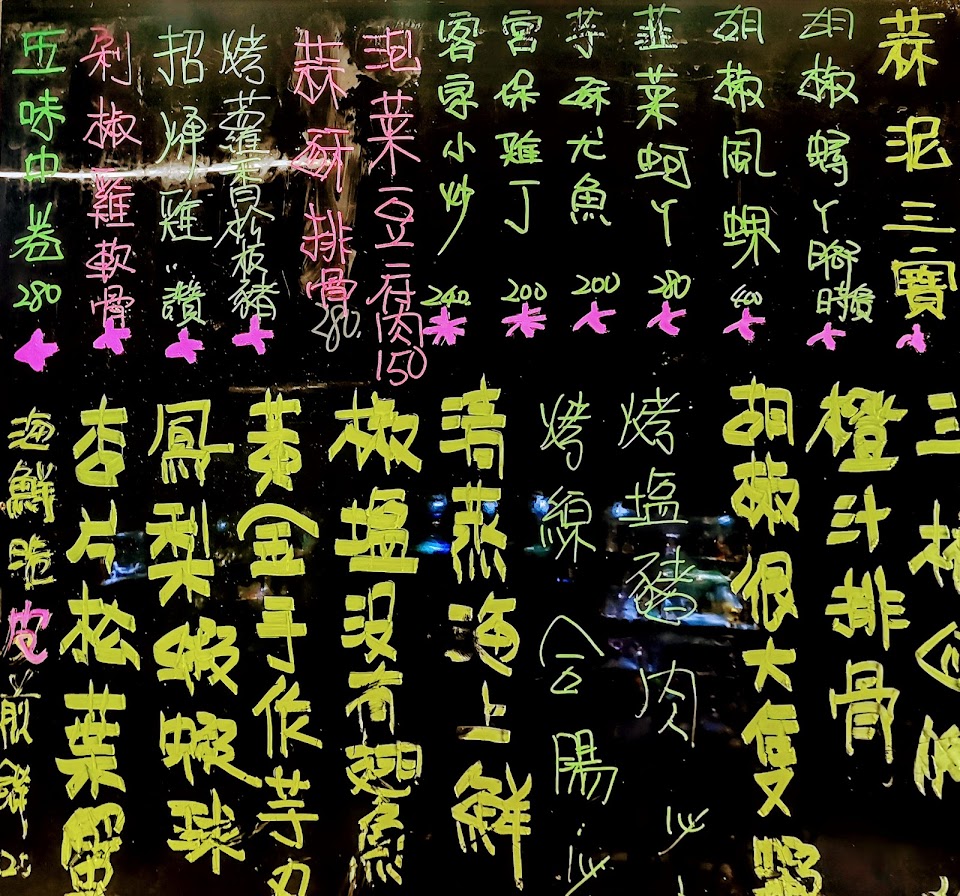 蒜泥三寶
胡椒蟳丫腳
胡椒風螺 400
韮菜蚵丫 280
芋酥尤魚 200
宮保雞丁 200
客家小炒 240
泡菜豆腐肉 150
蒜酥排骨 280
烤蘿蔔松板豬
招牌雞讚
剁椒雞軟骨
五味中卷 280
橙汁排骨
胡椒很大隻
烤塩豬肉
清蒸海上鮮
椒塩沒有翅魚
黃金手作芋丸
鳳梨蝦蝦球
杏片松葉蟹
海鮮脆皮煎餅